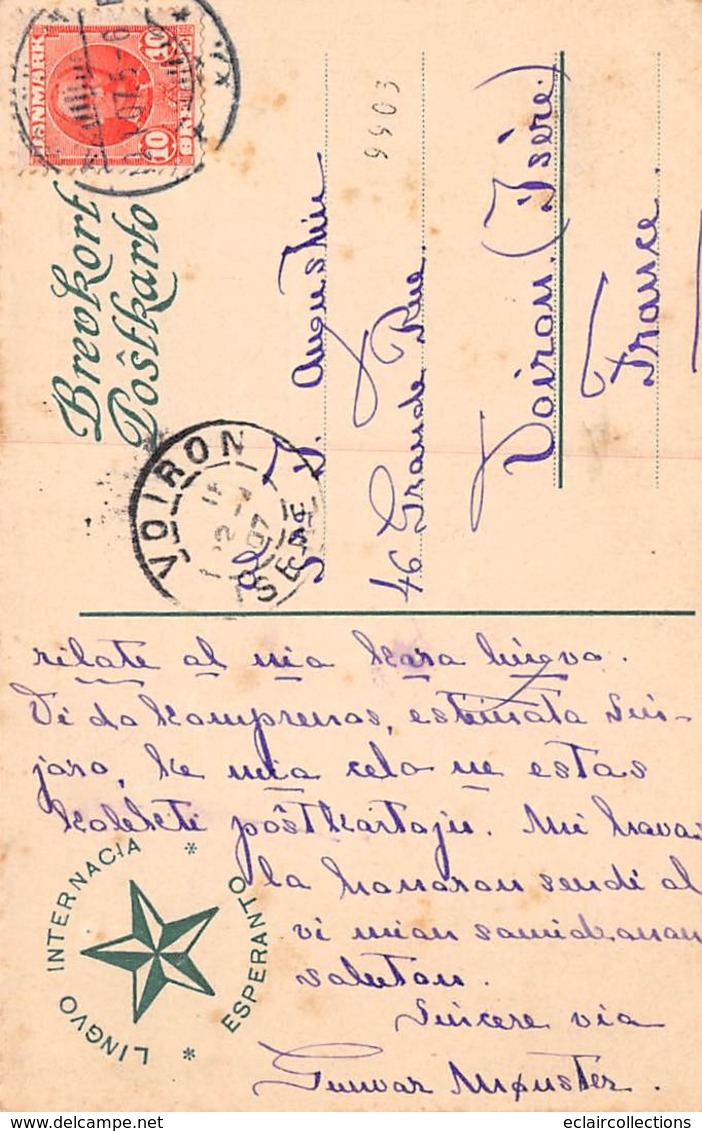 DANMARK
10 ØRE 10
Brevkort
Poŝtkarto
VOIRON
ISÈRE
9903
al
S-ro J. Augustin
46 Grande Rue.
Voiron. (Isère.)
France.
rilate al nia kara lingvo.
Vi do komprenas, estimata Sin-
joro, ke mia celo ne estas
kolekti poŝtkartojn. Mi havas
la honoron sendi al
vi mian samideanan
saluton.
Sincere via
Gunvar Mønster.
LINGVO INTERNACIA * ESPERANTO *
eclaircollections
www.delcampe.net